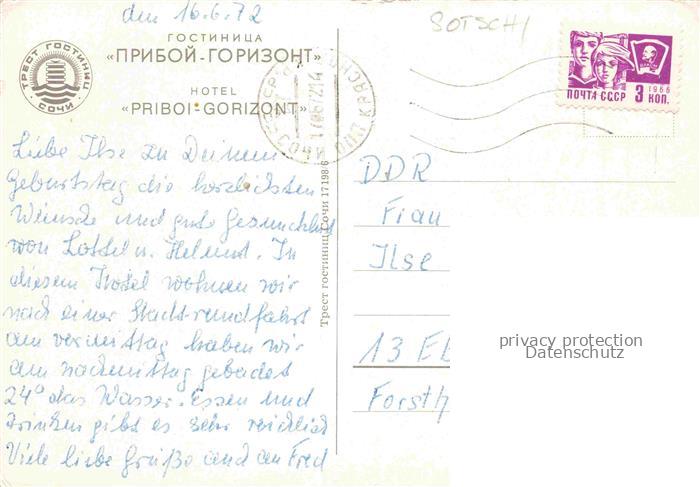 den 16.6.72
SOTSCHI
ГОСТИНИЦА
«ПРИБОЙ-ГОРИЗОНТ»
HOTEL
«PRIBOI-GORIZONT»
ТРЕСТ ГОСТИНИЦ
СОЧИ
ПОЧТА СССР 3 КОП.
1966
СОЧИ
Liebe Ilse zu Deinem
Geburtstag die herzlichsten
Wünsche und gute Gesundheit
von Lottel u. Helmut. In
diesem Hotel wohnen wir
nach einer Stadtrundfahrt
am vormittag haben wir
am nachmittag gebadet
24° das Wasser. Essen und
Trinken gibt es sehr reichlich
Viele liebe Grüße und an Fred
Трест гостиниц Сочи 17198/6
DDR
Frau
Ilse
13 Eb
Forsth
privacy protection
Datenschutz